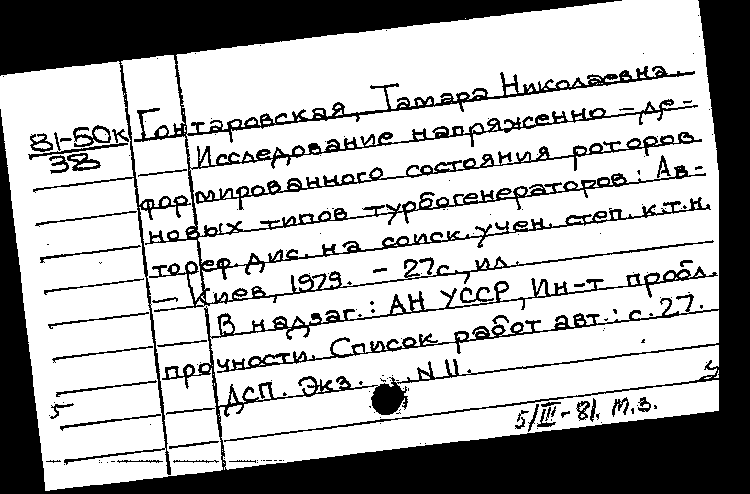 81-50к Гонтаровская, Тамара Николаевна.
38 Исследование напряженно-де-
формированного состояния роторов
новых типов турбогенераторов: Ав-
тореф. дис. на соиск. учен. степ. к.т.н.
— Киев, 1979. - 27с., ил.
В надзаг.: АН УССР, Ин-т пробл.
прочности. Список работ авт.: с. 27.
ДСП. Экз. N 11.
5/III-81. М.З.